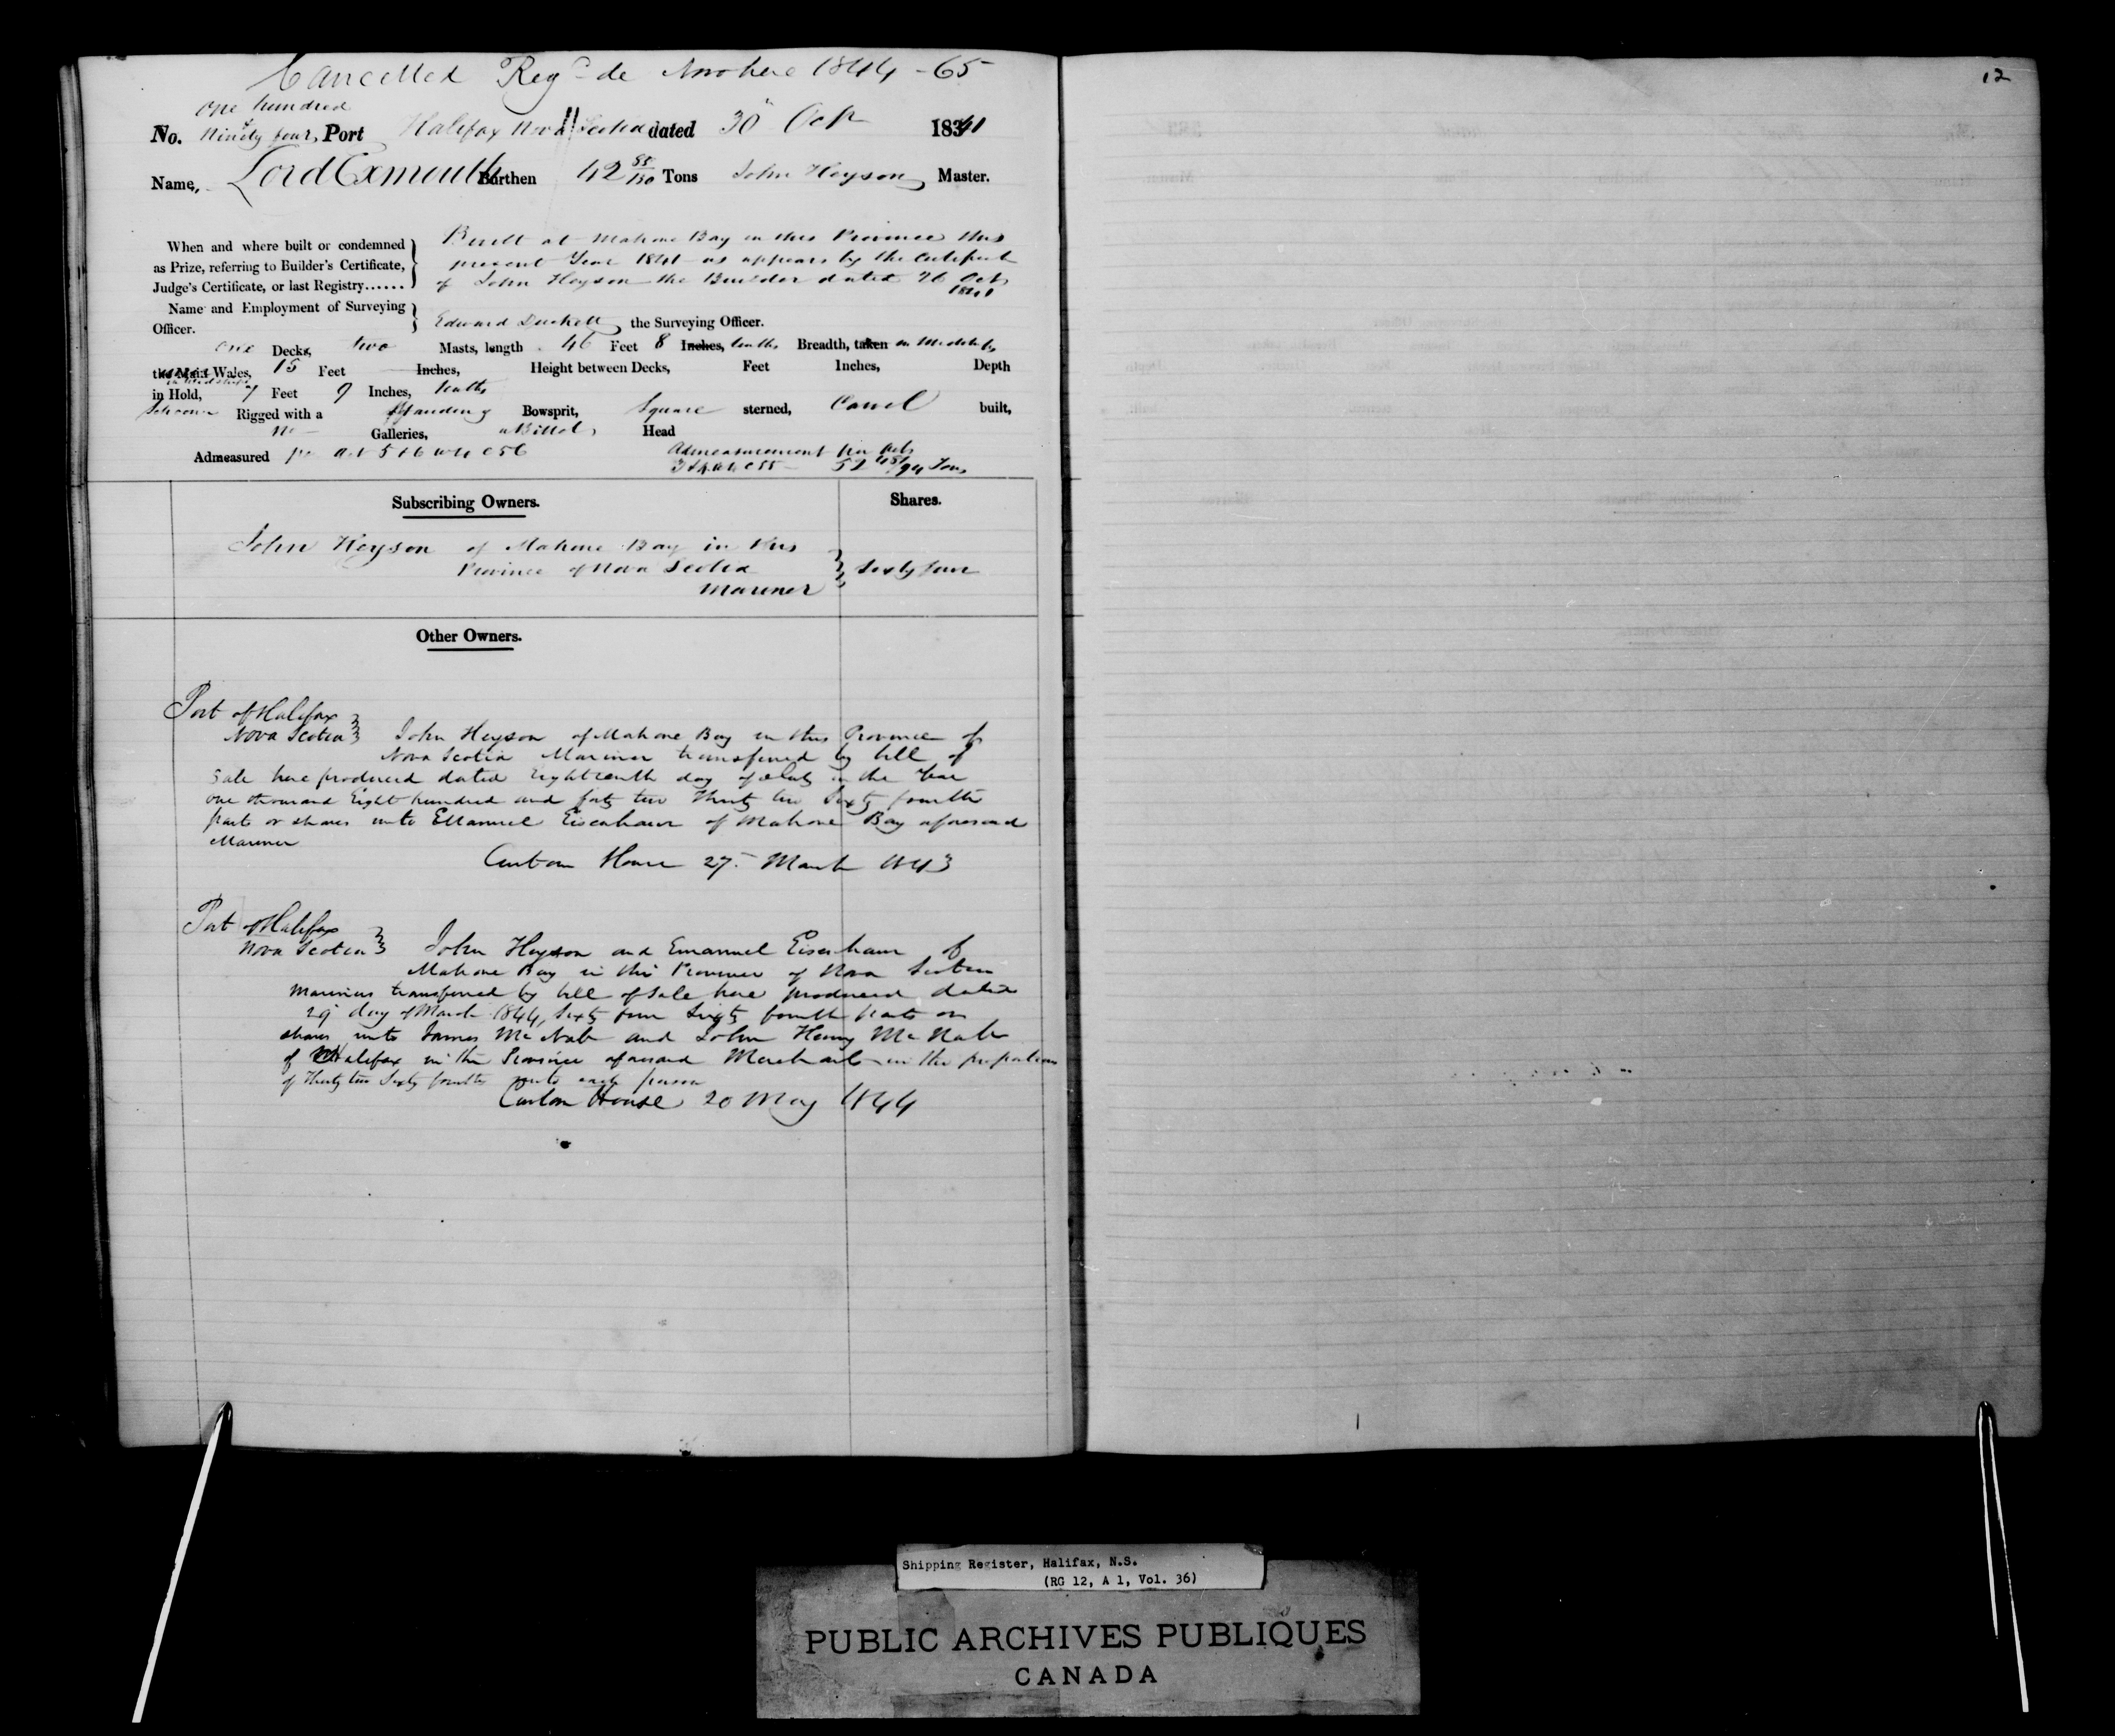 Cancelled Regd de Novo here 1844 - 65
12
one hundred
No. Ninety four, Port Halifax Nova Scotia dated 30th Oct 1841
Name, Lord Exmouth Burthen 42 85/130 Tons John Heyson Master.
When and where built or condemned
as Prize, referring to Builder's Certificate,
Judge's Certificate, or last Registry......
Built at Mahone Bay in this Province this
present Year 1841 as appears by the Certificate
of John Heyson the Builder dated 26 Oct
1841
Name and Employment of Surveying
Officer.
Edward Duckett, the Surveying Officer.
one Decks, two Masts, length 46 Feet 8 Inches, tenths Breadth, taken in Midships
the Main Wales, 15 Feet Inches, Height between Decks, Feet Inches, Depth
in Midships
in Hold, 7 Feet 9 Inches, tenths
Schooner Rigged with a Standing Bowsprit, Square sterned, Carvel built,
no Galleries, a Billet Head
Admeasured pr Act 5 & 6 W 4 C 56
Admeasurement per Act
3 & 4 W 4 C 55 - 52 45/94 Tons
Subscribing Owners.
Shares.
John Heyson of Mahone Bay in this
Province of Nova Scotia
Mariner
Sixty four
Other Owners.
Port of Halifax
Nova Scotia John Heyson of Mahone Bay in this Province of
Nova Scotia Mariner transferred by bill of
Sale here produced dated Eighteenth day of July in the Year
one thousand Eight hundred and forty two Thirty two Sixty fourth
parts or shares unto Emanuel Eisenhaur of Mahone Bay aforesaid
Mariner
Custom House 27 March 1843
Port of Halifax
Nova Scotia John Heyson and Emanuel Eisenhaur of
Mahone Bay in this Province of Nova Scotia
Mariners transferred by bill of Sale here produced dated
29 day of March 1844, Sixty four Sixty fourth parts or
shares unto James McNab and John Henry McNab
of Halifax in the Province aforesaid Merchants in the proportions
of Thirty two Sixty fourths unto each person
Custom House 20 May 1844
Shipping Register, Halifax, N.S.
(RG 12, A 1, Vol. 36)
PUBLIC ARCHIVES PUBLIQUES
CANADA